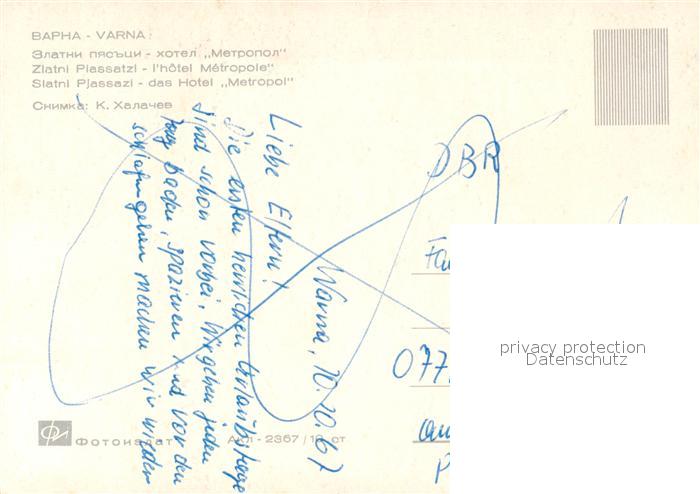 ВАРНА - VARNA
Златни пясъци - хотел „Метропол"
Zlatni Piassatzi - l'hôtel Métropole"
Slatni Pjassazi - das Hotel „Metropol"
Снимка: К. Халачев
Warna, 10.10.67
Liebe Eltern!
Die ersten herrlichen Urlaubstage
sind schon vorbei. Wir gehen jeden
Tag baden, spazieren und vor den
schlafengehen machen wir wieder
DBR
Fa
077
P
privacy protection
Datenschutz
Фотоиздат
АКЛ - 2367 / 19 ст